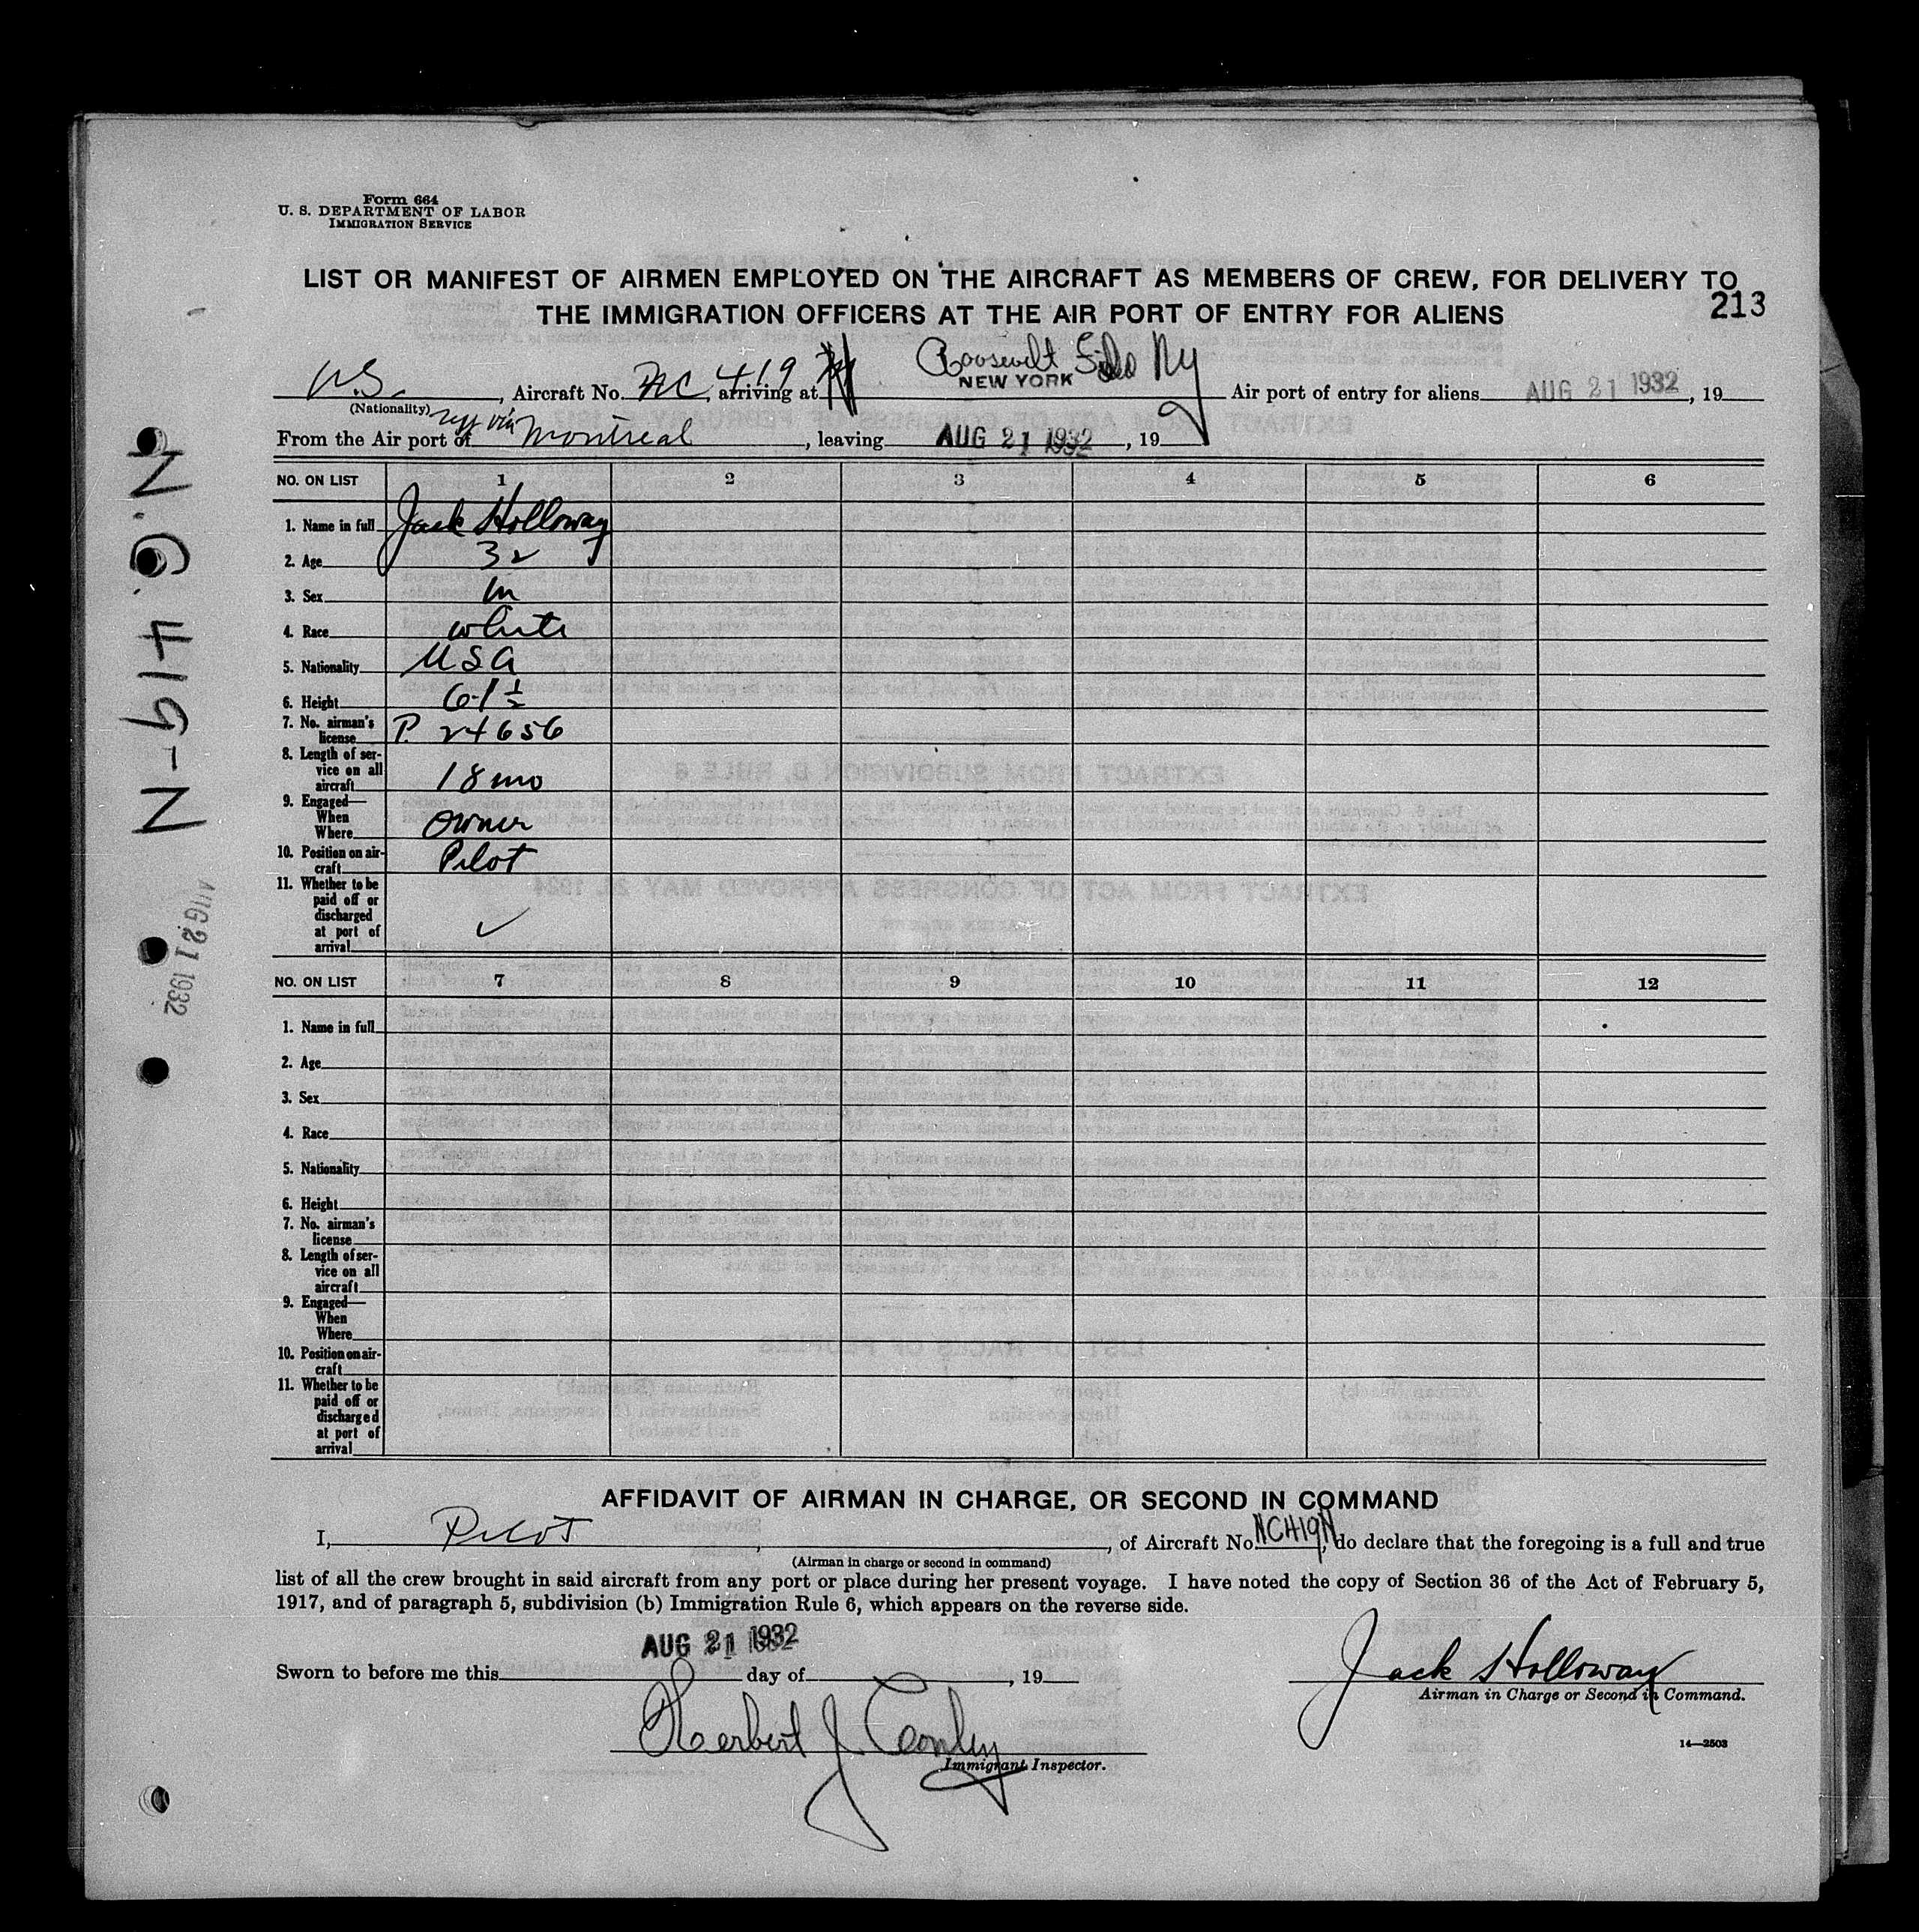 Form 664
U. S. DEPARTMENT OF LABOR
IMMIGRATION SERVICE
LIST OR MANIFEST OF AIRMEN EMPLOYED ON THE AIRCRAFT AS MEMBERS OF CREW, FOR DELIVERY TO
THE IMMIGRATION OFFICERS AT THE AIR PORT OF ENTRY FOR ALIENS
213
U.S., Aircraft No. NC 419 N, arriving at Roosevelt NEW YORK NY Air port of entry for aliens AUG 21 1932, 19
(Nationality)
From the Air port of via Montreal, leaving AUG 21 1932, 19
NO. ON LIST 1 2 3 4 5 6
1. Name in full Jack Holloway
2. Age 32
3. Sex m
4. Race white
5. Nationality USA
6. Height 6-1 1/2
7. No. airman's
license P. 24656
8. Length of ser-
vice on all
aircraft 18 mo
9. Engaged—
When
Where owner
10. Position on air-
craft Pilot
11. Whether to be
paid off or
discharged
at port of
arrival ✓
NO. ON LIST 7 8 9 10 11 12
1. Name in full
2. Age
3. Sex
4. Race
5. Nationality
6. Height
7. No. airman's
license
8. Length of ser-
vice on all
aircraft
9. Engaged—
When
Where
10. Position on air-
craft
11. Whether to be
paid off or
discharged
at port of
arrival
AFFIDAVIT OF AIRMAN IN CHARGE, OR SECOND IN COMMAND
I, Pilot, of Aircraft No. NC419N, do declare that the foregoing is a full and true
(Airman in charge or second in command)
list of all the crew brought in said aircraft from any port or place during her present voyage. I have noted the copy of Section 36 of the Act of February 5,
1917, and of paragraph 5, subdivision (b) Immigration Rule 6, which appears on the reverse side.
AUG 21 1932
Sworn to before me this day of, 19
Jack Holloway
Airman in Charge or Second in Command.
Herbert J. Conley
Immigrant Inspector.
14—2503
N-419.N
AUG 21 1932